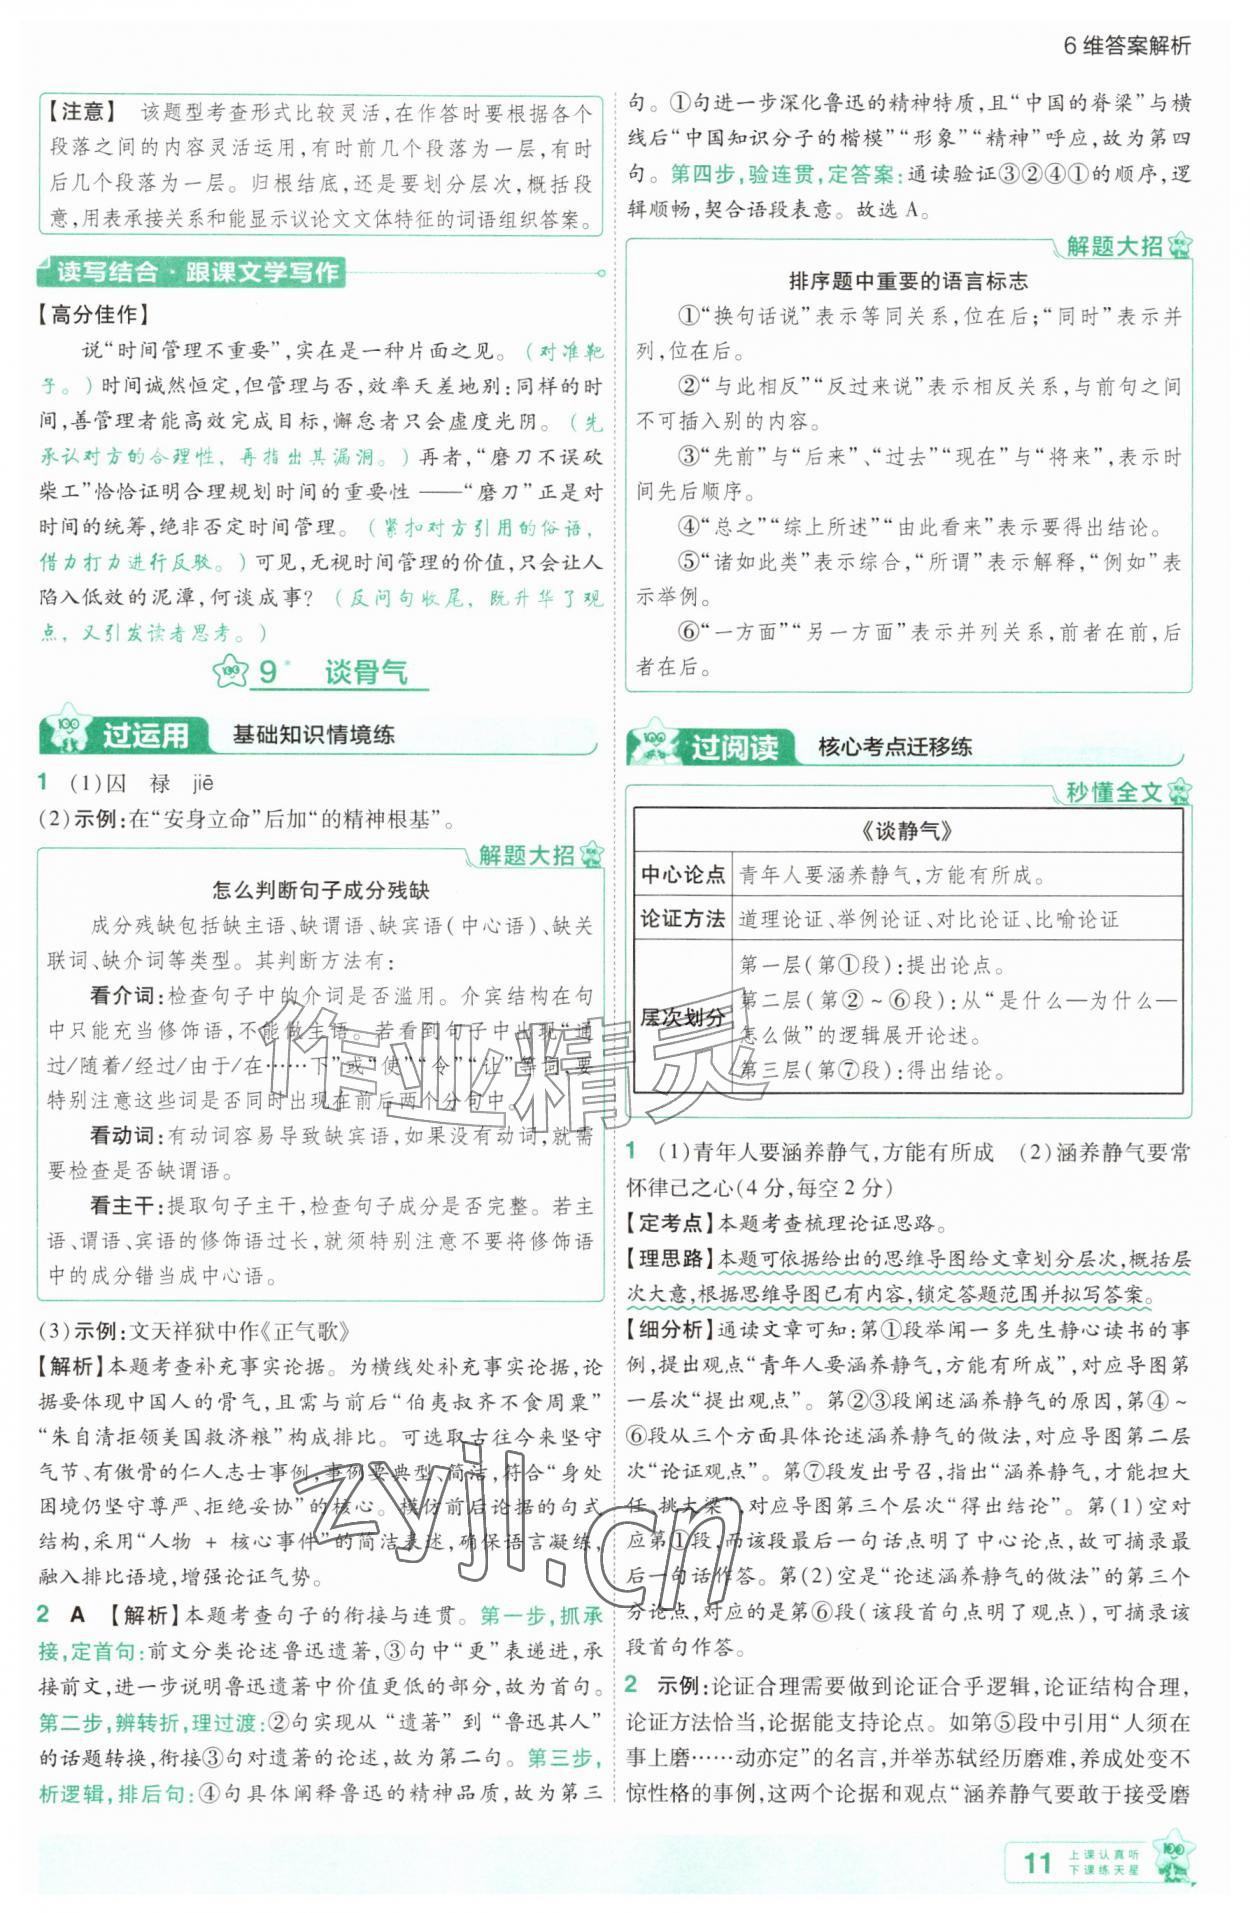 6 维答案解析
【注意】 该题型考查形式比较灵活,在作答时要根据各个
段落之间的内容灵活运用,有时前几个段落为一层,有时
后几个段落为一层。归根结底,还是要划分层次,概括段
意,用表承接关系和能显示议论文文体特征的词语组织答案。
读写结合·跟课文学写作
【高分佳作】
说“时间管理不重要”,实在是一种片面之见。(对准靶
子。)时间诚然恒定,但管理与否,效率天差地别:同样的时
间,善管理者能高效完成目标,懈怠者只会虚度光阴。(先
承认对方的合理性，再指出其漏洞。)再者,“磨刀不误砍
柴工”恰恰证明合理规划时间的重要性 ——“磨刀”正是对
时间的统筹,绝非否定时间管理。(紧扣对方引用的俗语，
借力打力进行反驳。)可见,无视时间管理的价值,只会让人
陷入低效的泥潭,何谈成事?(反问句收尾，既升华了观
点，又引发读者思考。)
9* 谈骨气
过运用 基础知识情境练
1 (1)囚 禄 jiē
(2)示例:在“安身立命”后加“的精神根基”。
解题大招
怎么判断句子成分残缺
成分残缺包括缺主语、缺谓语、缺宾语(中心语)、缺关
联词、缺介词等类型。其判断方法有:
看介词:检查句子中的介词是否滥用。介宾结构在句
中只能充当修饰语,不能做主语。若看到句子中出现“通
过/随着/经过/由于/在……下”或“使”“令”“让”等词,要
特别注意这些词是否同时出现在前后两个分句中。
看动词:有动词容易导致缺宾语,如果没有动词,就需
要检查是否缺谓语。
看主干:提取句子主干,检查句子成分是否完整。若主
语、谓语、宾语的修饰语过长,就须特别注意不要将修饰语
中的成分错当成中心语。
(3)示例:文天祥狱中作《正气歌》
【解析】本题考查补充事实论据。为横线处补充事实论据,论
据要体现中国人的骨气,且需与前后“伯夷叔齐不食周粟”
“朱自清拒领美国救济粮”构成排比。可选取古往今来坚守
气节、有傲骨的仁人志士事例,事例要典型、简洁,符合“身处
困境仍坚守尊严、拒绝妥协”的核心。模仿前后论据的句式
结构,采用“人物 + 核心事件”的简洁表述,确保语言凝练,
融入排比语境,增强论证气势。
2 A 【解析】本题考查句子的衔接与连贯。第一步,抓承
接,定首句:前文分类论述鲁迅遗著,③句中“更”表递进,承
接前文,进一步说明鲁迅遗著中价值更低的部分,故为首句。
第二步,辨转折,理过渡:②句实现从“遗著”到“鲁迅其人”
的话题转换,衔接③句对遗著的论述,故为第二句。第三步,
析逻辑,排后句:④句具体阐释鲁迅的精神品质,故为第三
句。①句进一步深化鲁迅的精神特质,且“中国的脊梁”与横
线后“中国知识分子的楷模”“形象”“精神”呼应,故为第四
句。第四步,验连贯,定答案:通读验证③②④①的顺序,逻
辑顺畅,契合语段表意。故选 A。
解题大招
排序题中重要的语言标志
①“换句话说”表示等同关系,位在后;“同时”表示并
列,位在后。
②“与此相反”“反过来说”表示相反关系,与前句之间
不可插入别的内容。
③“先前”与“后来”、“过去”“现在”与“将来”,表示时
间先后顺序。
④“总之”“综上所述”“由此看来”表示要得出结论。
⑤“诸如此类”表示综合,“所谓”表示解释,“例如”表
示举例。
⑥“一方面”“另一方面”表示并列关系,前者在前,后
者在后。
过阅读 核心考点迁移练
秒懂全文
《谈静气》
中心论点 青年人要涵养静气,方能有所成。
论证方法 道理论证、举例论证、对比论证、比喻论证
层次划分
第一层(第①段):提出论点。
第二层(第②～⑥段):从“是什么—为什么—
怎么做”的逻辑展开论述。
第三层(第⑦段):得出结论。
1 (1)青年人要涵养静气,方能有所成 (2)涵养静气要常
怀律己之心(4 分,每空 2 分)
【定考点】本题考查梳理论证思路。
【理思路】本题可依据给出的思维导图给文章划分层次,概括层
次大意,根据思维导图已有内容,锁定答题范围并拟写答案。
【细分析】通读文章可知:第①段举闻一多先生静心读书的事
例,提出观点“青年人要涵养静气,方能有所成”,对应导图第
一层次“提出观点”。第②③段阐述涵养静气的原因,第④～
⑥段从三个方面具体论述涵养静气的做法,对应导图第二层
次“论证观点”。第⑦段发出号召,指出“涵养静气,才能担大
任,挑大梁”,对应导图第三个层次“得出结论”。第(1)空对
应第①段,而该段最后一句话点明了中心论点,故可摘录最
后一句话作答。第(2)空是“论述涵养静气的做法”的第三个
分论点,对应的是第⑥段(该段首句点明了观点),可摘录该
段首句作答。
2 示例:论证合理需要做到论证合乎逻辑,论证结构合理,
论证方法恰当,论据能支持论点。如第⑤段中引用“人须在
事上磨……动亦定”的名言,并举苏轼经历磨难,养成处变不
惊性格的事例,这两个论据和观点“涵养静气要敢于接受磨
作业精灵
zyjl.cn
11
上课认真听
下课练天星